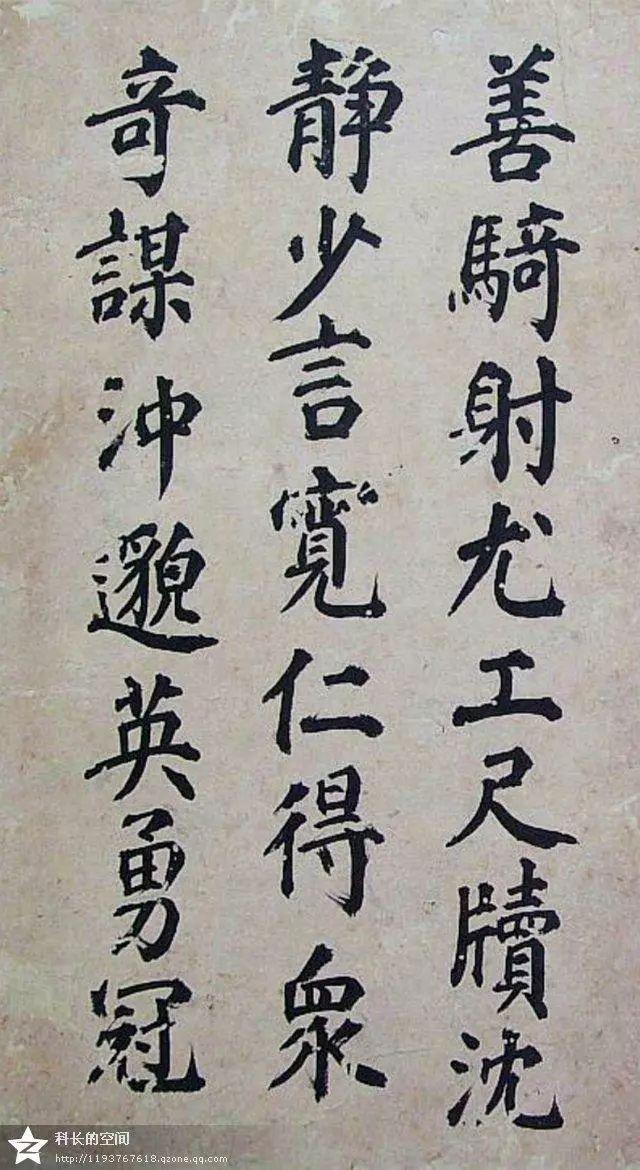 善騎射尤工尺牘沈
静少言寬仁得衆
奇謀沖邈英勇冠
科长的空间
http://1193767618.qzone.qq.com